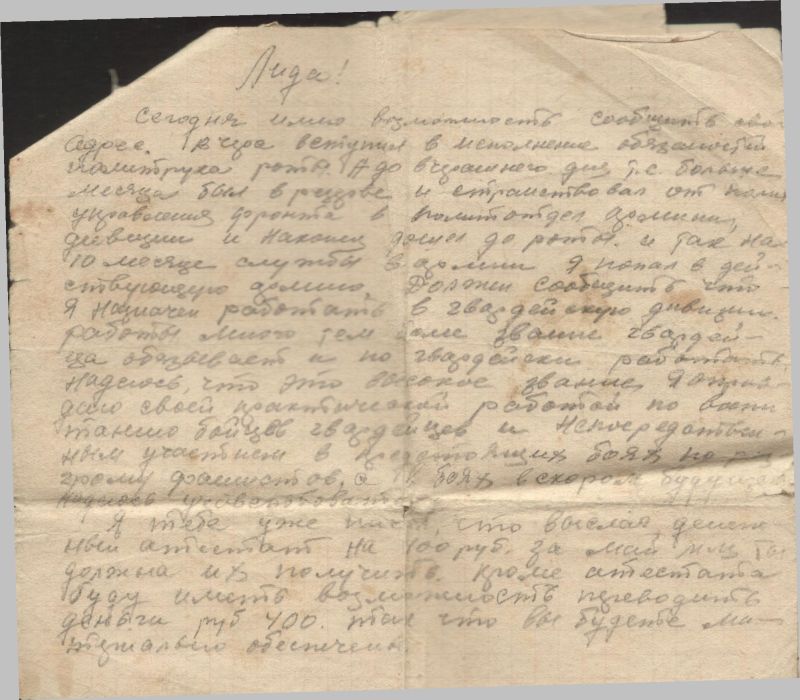 Лида!
Сегодня имею возможность сообщить свой
адрес. Вчера вступил в исполнение обязаностей
политрука роты. А до вчерашнего дня т.е. больше
месяца был в резерве и странствовал от полит
управления фронта в политотдел армии,
дивизии и наконец дошел до роты. и так на
10 месяце службы в армии я попал в дей-
ствующую армию. Должен сообщить что
я назначен работать в гвардейскую дивизию.
работы много тем более звание гвардей-
ца обязывает и по гвардейски работать.
Надеюсь, что это высокое звание я оправ-
даю своей практической работой по воспи
танию бойцов гвардейцев и непосредствен-
ным участием в предстоящих боях по раз
грому фашистов, а в боях в скором будущем
надеюсь участвовать.
Я тебе уже писал, что выслал денеж
ный аттестат на 400 руб. за май м-ц ты
должна их получить. Кроме атестата
буду иметь возможность переводить
деньги руб 400. так что вы будете ма-
териально обеспечены.